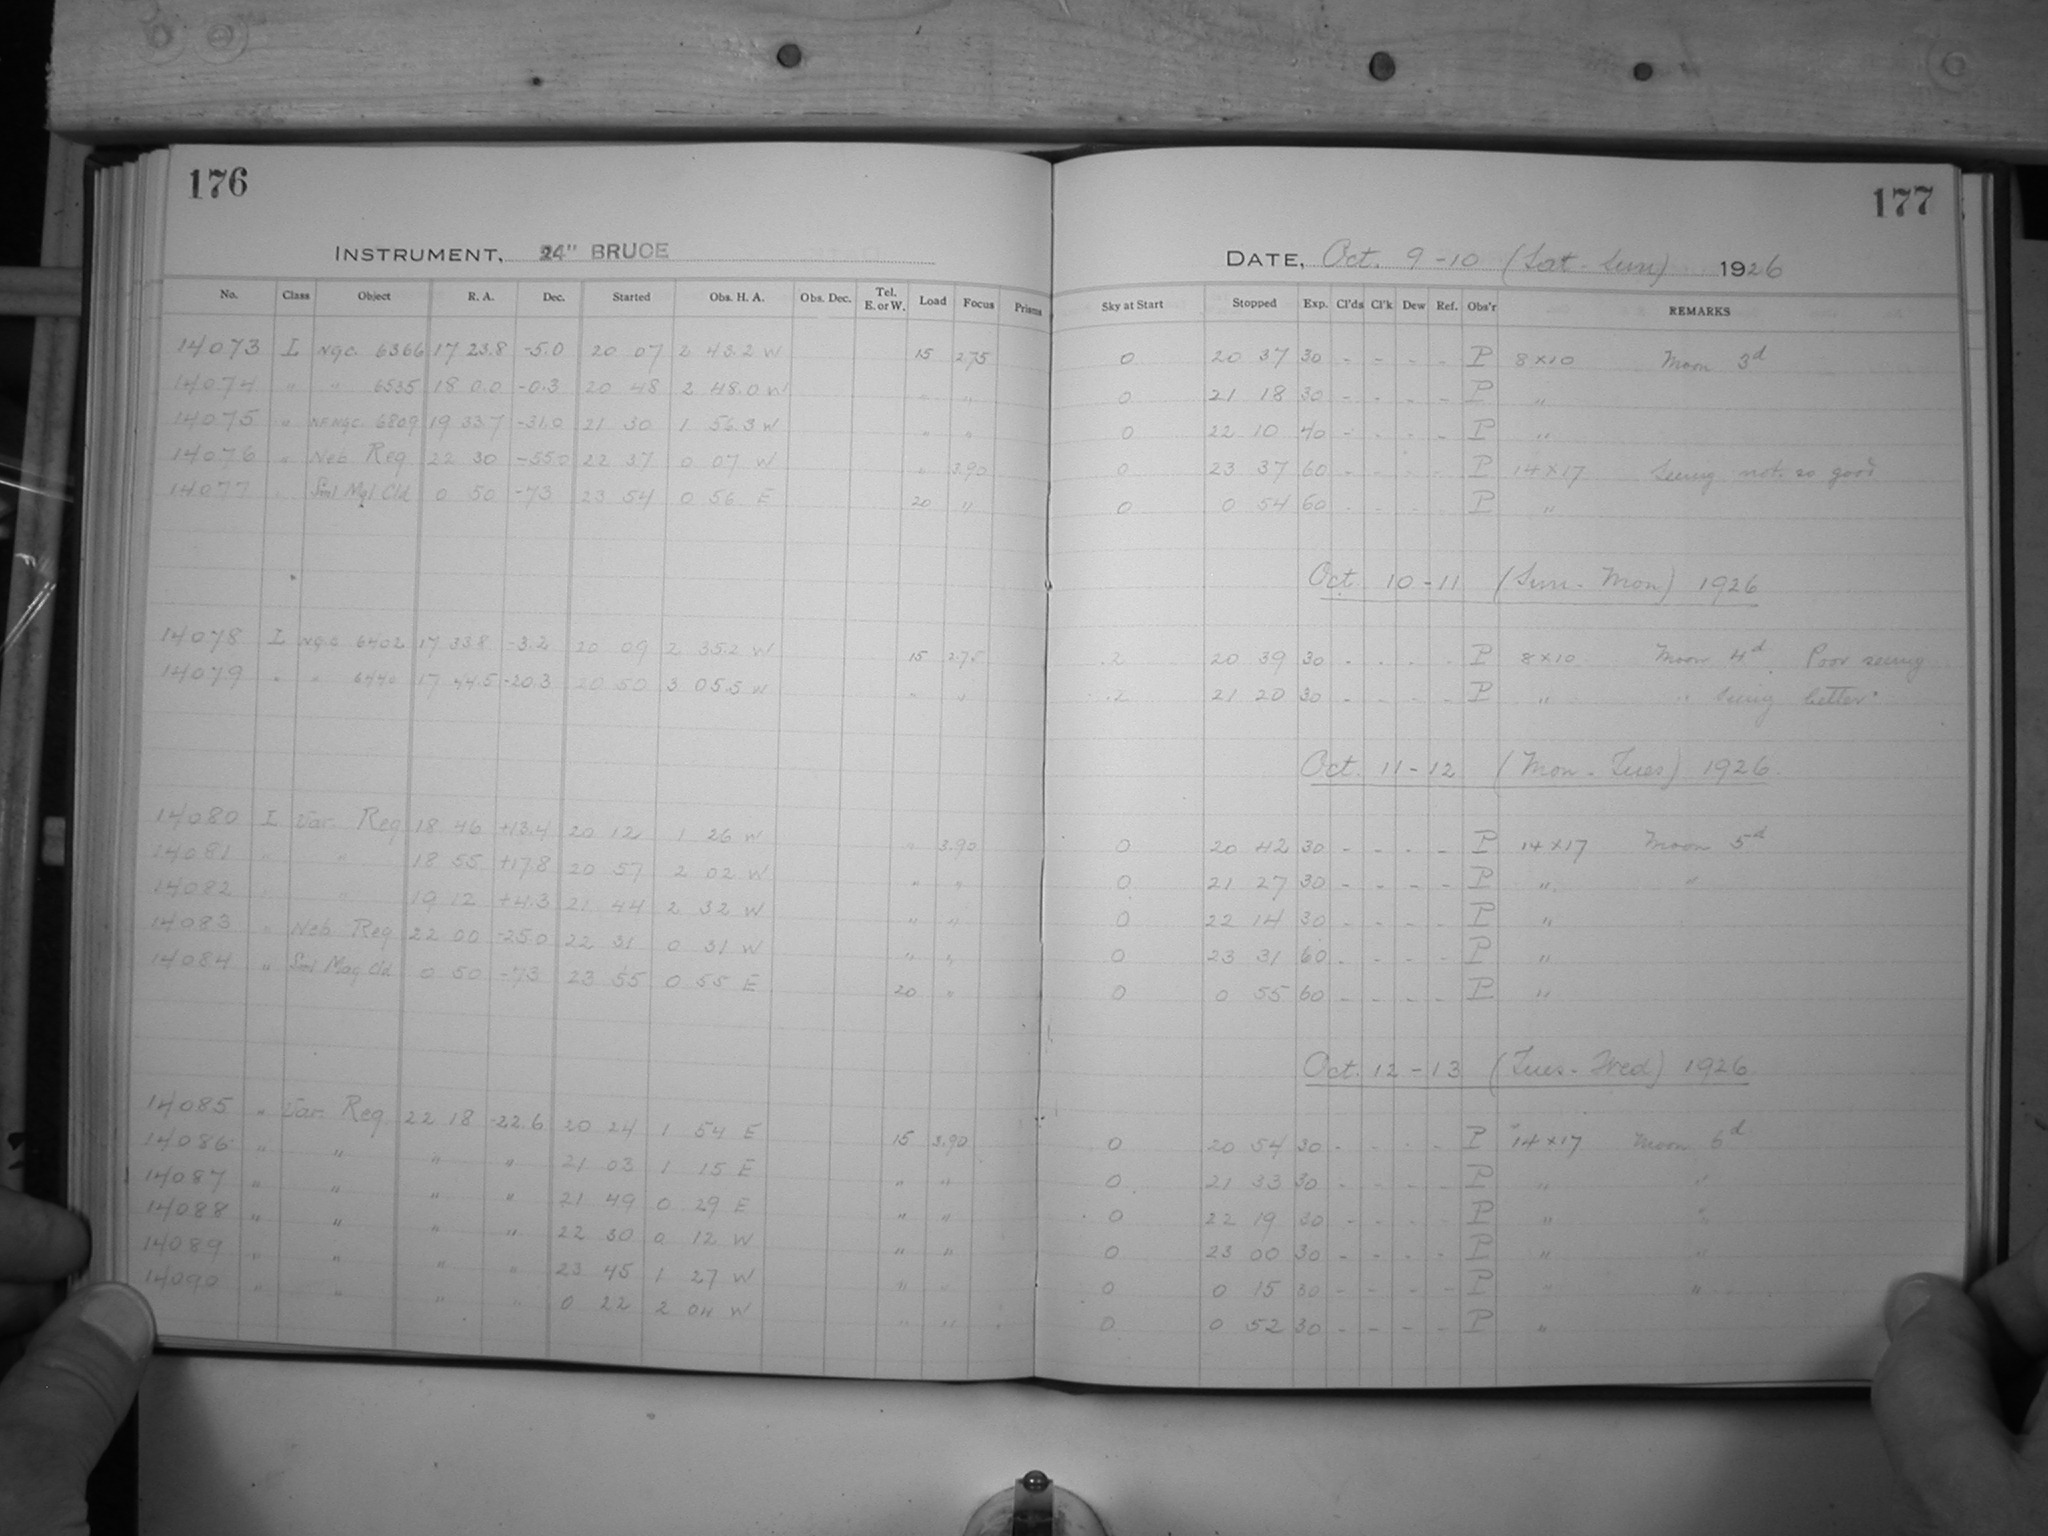 176
INSTRUMENT, 24" BRUCE
No. Class Object R. A. Dec. Started Obs. H. A. Obs. Dec. Tel. E. or W. Load Focus Prisms
14073 I NGC. 6366 17 23.8 -5.0 20 07 2 43.2 W 15 2.75
14074 " " 6535 18 0.0 -0.3 20 48 2 48.0 W " "
14075 " NGC. 6809 19 33.7 -31.0 21 30 1 56.3 W " "
14076 " Neb Reg 22 30 -55.0 22 37 0 07 W " 3.90
14077 " Sml Mgl Cld 0 50 -73 23 54 0 56 E 20 "
14078 I NGC 6402 17 33.8 -3.2 20 09 2 35.2 W 15 2.75
14079 " " 6440 17 44.5 -20.3 20 50 3 05.5 W " "
14080 I Var. Reg 18 46 +13.4 20 12 1 26 W " 3.90
14081 " " 18 55 +17.8 20 57 2 02 W " "
14082 " " 19 12 +4.3 21 44 2 32 W " "
14083 " Neb Reg 22 00 -25.0 22 31 0 31 W " "
14084 " Sml Mag Cld 0 50 -73 23 55 0 55 E 20 "
14085 " Var. Reg 22 18 -22.6 20 24 1 54 E 15 3.90
14086 " " " " 21 03 1 15 E " "
14087 " " " " 21 49 0 29 E " "
14088 " " " " 22 30 0 12 W " "
14089 " " " " 23 45 1 27 W " "
14090 " " " " 0 22 2 04 W " "
177
DATE, Oct. 9-10 (Sat-Sun) 1926
Sky at Start Stopped Exp. Cl'ds Cl'k Dew Ref. Obs'r REMARKS
0 20 37 30 - - - - P 8x10 Moon 3d
0 21 18 30 - - - - P "
0 22 10 40 - - - - P "
0 23 37 60 - - - - P 14x17 Seeing not so good
0 0 54 60 - - - - P "
Oct. 10-11 (Sun-Mon) 1926
.2 20 39 30 - - - - P 8x10 Moon 4d. Poor seeing
.2 21 20 30 - - - - P " " Seeing better
Oct. 11-12 (Mon-Tues) 1926.
0 20 42 30 - - - - P 14x17 Moon 5d
0 21 27 30 - - - - P " "
0 22 14 30 - - - - P "
0 23 31 60 - - - - P "
0 0 55 60 - - - - P "
Oct. 12-13 (Tues-Wed) 1926
0 20 54 30 - - - - P 14x17 Moon 6d
0 21 33 30 - - - - P " "
0 22 19 30 - - - - P " "
0 23 00 30 - - - - P " "
0 0 15 30 - - - - P " "
0 0 52 30 - - - - P "